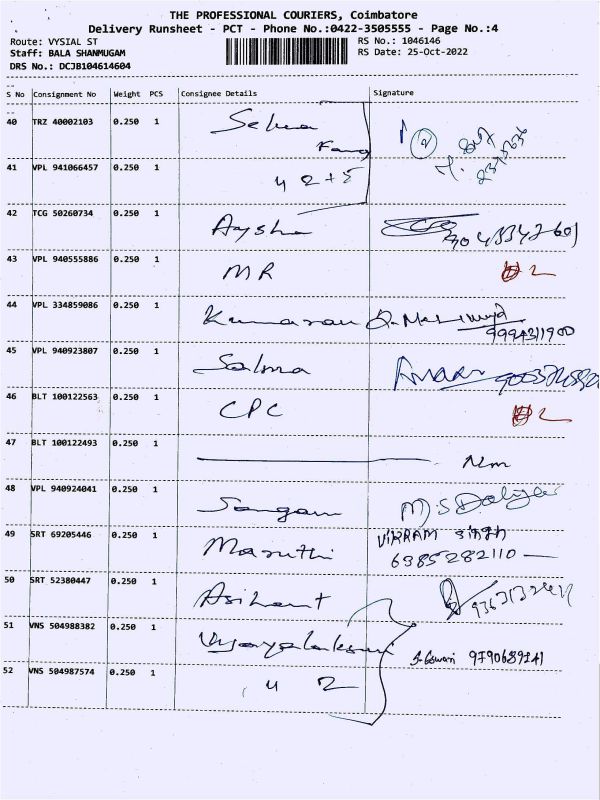 THE PROFESSIONAL COURIERS, Coimbatore
Delivery Runsheet - PCT - Phone No.:0422-3505555 - Page No.:4
Route: VYSIAL ST
RS No.: 1046146
Staff: BALA SHANMUGAM
RS Date: 25-Oct-2022
DRS No.: DCJB104614604
S No Consignment No Weight PCS Consignee Details Signature
40 TRZ 40002103 0.250 1 Selva
Fang
2
41 VPL 941066457 0.250 1 4 2+5
42 TCG 50260734 0.250 1 Aysha
43 VPL 940555886 0.250 1 MR
44 VPL 334859086 0.250 1 Kumaran
9994311900
45 VPL 940923807 0.250 1 Salma
46 BLT 100122563 0.250 1 CPC
47 BLT 100122493 0.250 1
48 VPL 940924041 0.250 1 Sangam
49 SRT 69205446 0.250 1 Maruthi VIKRAM
6385282110
50 SRT 52380447 0.250 1 Asihant
51 VNS 504988382 0.250 1 Vijayalakshmi
9790689141
52 VNS 504987574 0.250 1 4 2